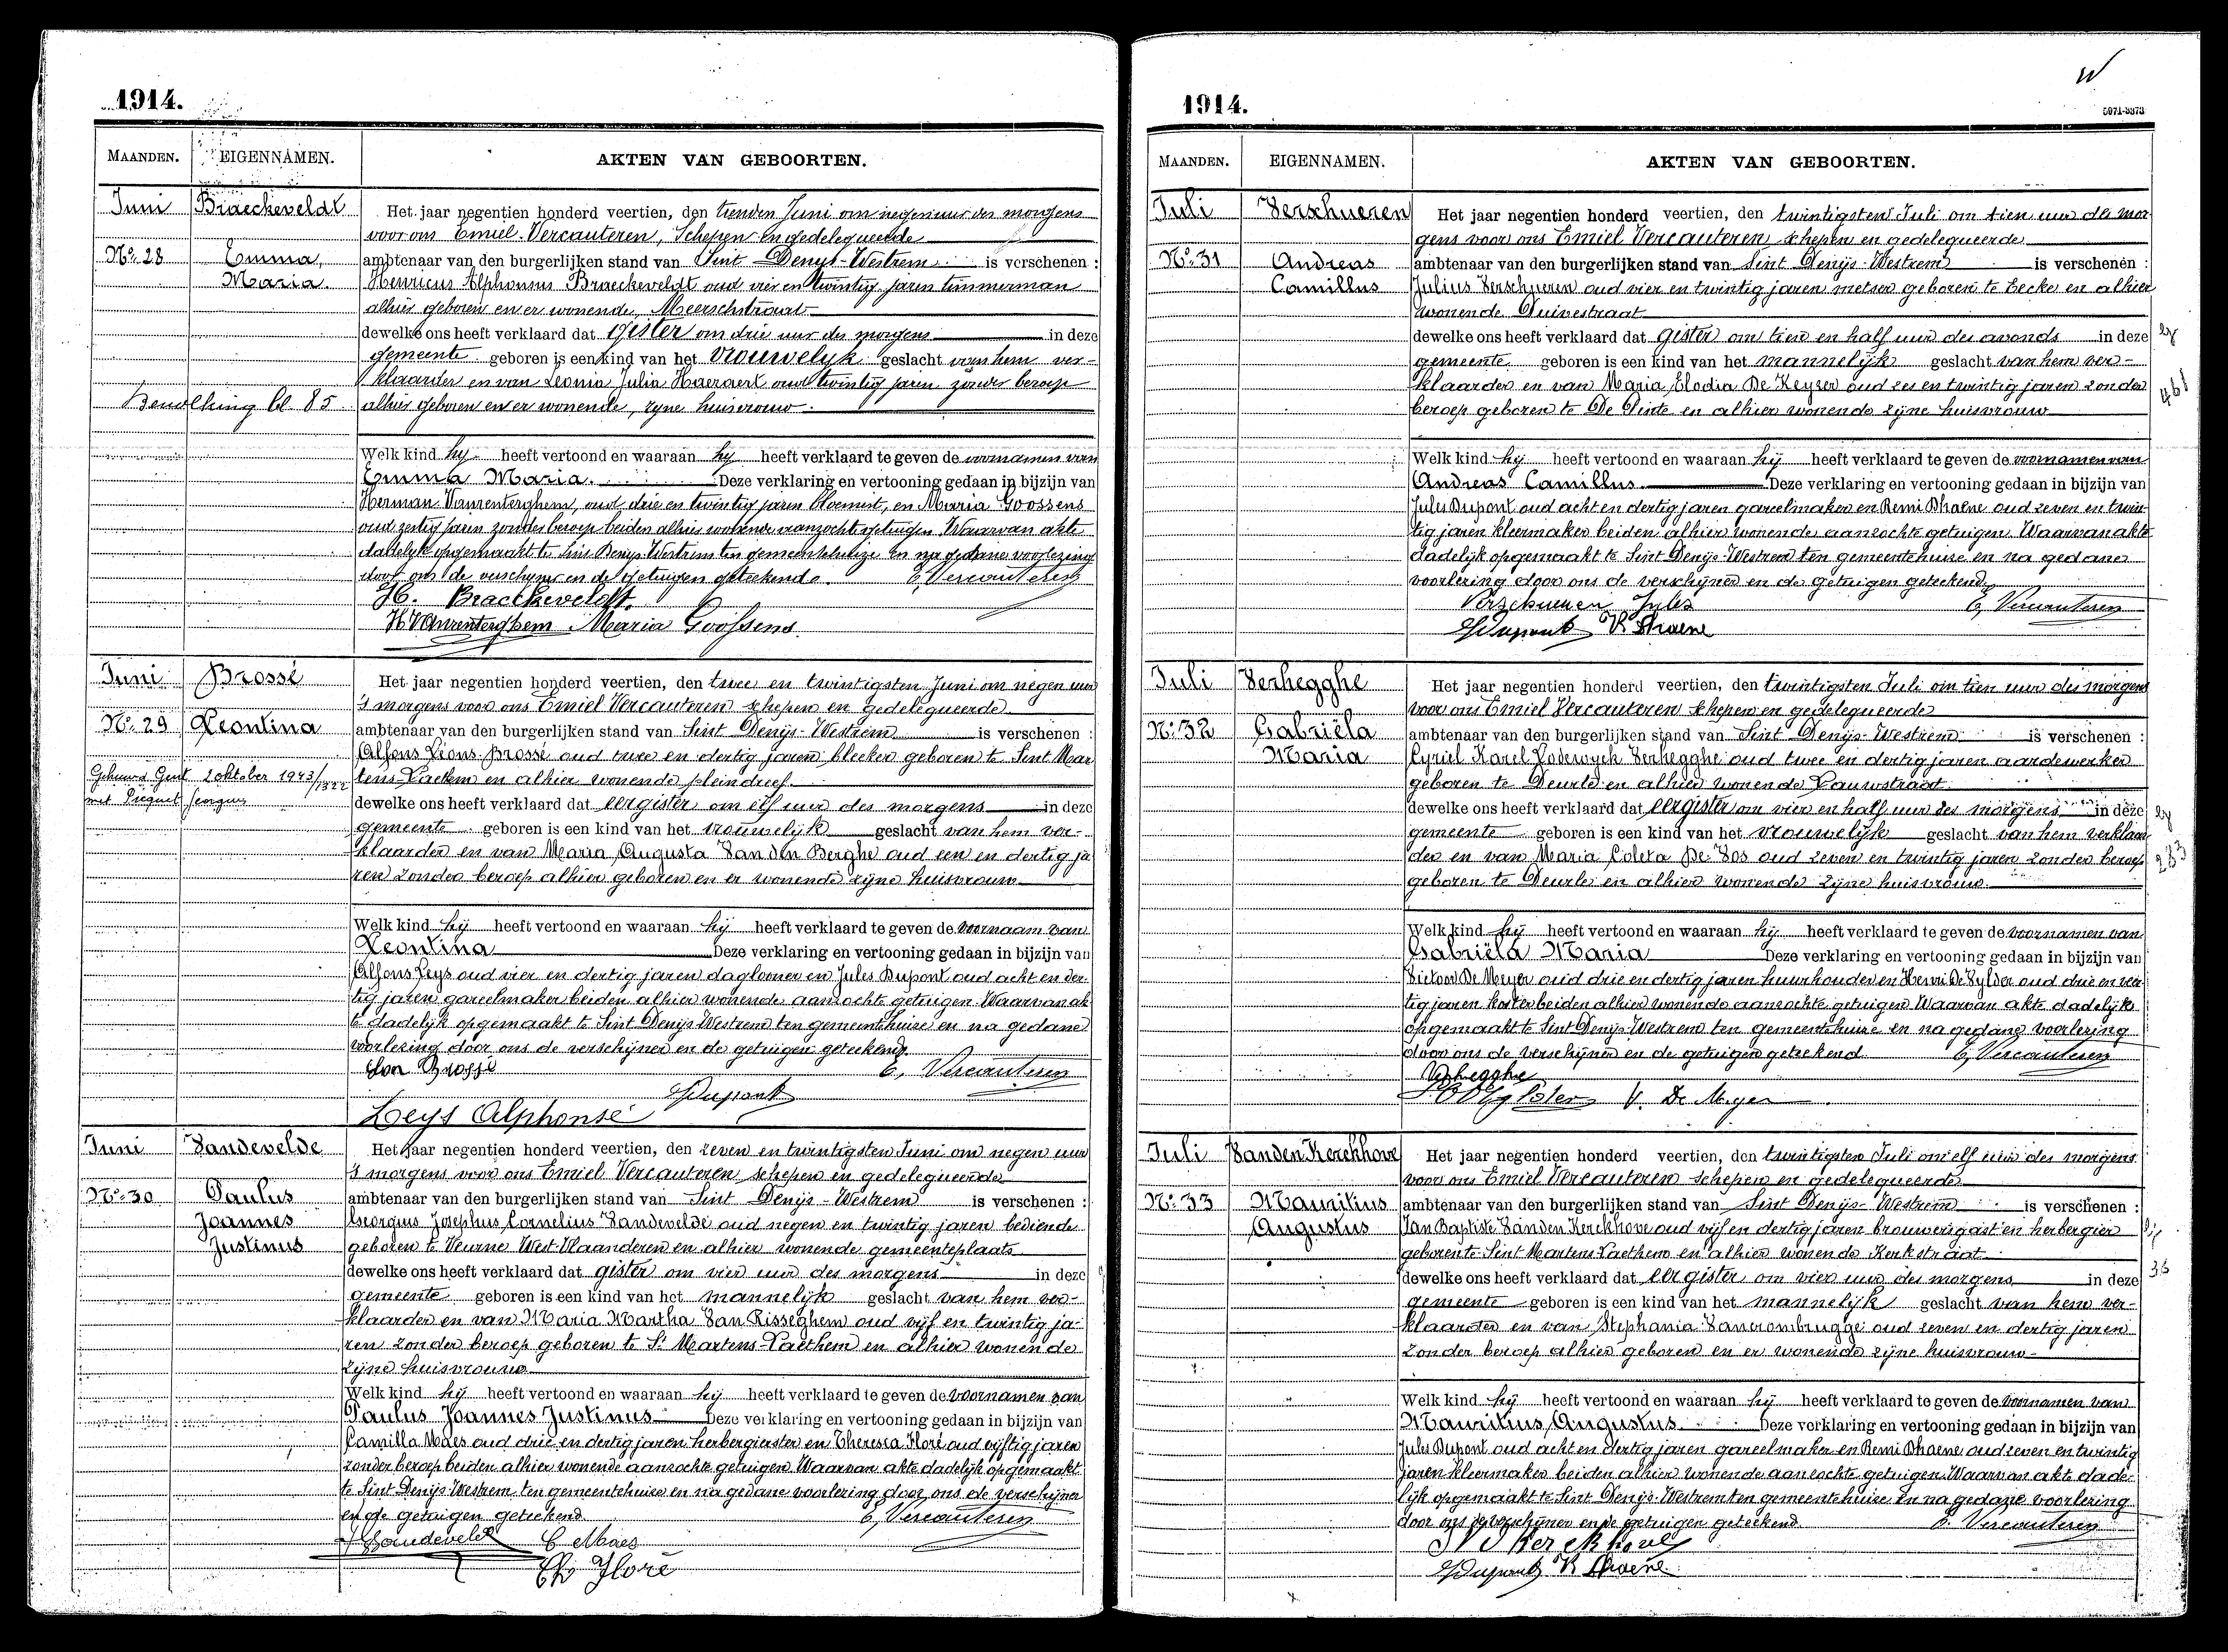 1914.
MAANDEN. EIGENNAMEN. AKTEN VAN GEBOORTEN.
Juni Braeckeveldt Het jaar negentien honderd veertien, den tienden Juni om negen uur des morgens
voor ons Emiel Vercauteren, Schepen en gedelegueerde
No 28 Emma, ambtenaar van den burgerlijken stand van Sint Denys-Westrem is verschenen :
Maria. Henricus Alphonsus Braeckeveldt oud vier en twintig jaren timmerman
alhier geboren en er wonende, Meerschstraat
dewelke ons heeft verklaard dat gister om drie uur des morgens in deze
gemeente geboren is een kind van het vrouwelyk geslacht van hem ver-
klaarder en van Leonia Julia Haeraert oud twintig jaren zonder beroep
Bevolking bl. 85 alhier geboren en er wonende, zyne huisvrouw.
Welk kind hy heeft vertoond en waaraan hy heeft verklaard te geven de voornamen van
Emma Maria. Deze verklaring en vertooning gedaan in bijzijn van
Herman Vanrenterghem, oud drie en twintig jaren bloemist, en Maria Goossens
oud zestig jaren zonder beroep beiden alhier wonende aanzochte getuigen. Waarvan akte
dadelyk opgemaakt te Sint Denys Westrem ten gemeentehuize en na gedane voorlezing
door ons de verschyner en de getuigen geteekend. E, Vercauteren
H. Braeckeveldt.
H Vanrenterghem Maria Goossens
Juni Brossé Het jaar negentien honderd veertien, den twee en twintigsten Juni om negen uur
's morgens voor ons Emiel Vercauteren schepen en gedelegueerde
No 29 Leontina ambtenaar van den burgerlijken stand van Sint Denijs-Westrem is verschenen :
Alfons Léons Brossé oud twee en dertig jaren bleeker geboren te Sint Mar
Gehuwd Gent 2 oktober 1943/1322 tens-Laethem en alhier wonende pleindreef.
met Piequet Georges dewelke ons heeft verklaard dat eergister om elf uur des morgens in deze
gemeente geboren is een kind van het vrouwelijk geslacht van hem ver-
klaarder en van Maria Augusta Van den Berghe oud een en dertig ja
ren zonder beroep alhier geboren en er wonende zijne huisvrouw
Welk kind hij heeft vertoond en waaraan hij heeft verklaard te geven de voornaam van
Leontina Deze verklaring en vertooning gedaan in bijzijn van
Alfons Leys oud vier en dertig jaren daglooner en Jules Dupont oud acht en der-
tig jaren gareelmaker beiden alhier wonende aanzochte getuigen. Waarvan ak
te dadelijk opgemaakt te Sint Denijs Westrem ten gemeentehuize en na gedane
voorlezing door ons de verschijner en de getuigen geteekend.
Brossé E, Vercauteren
Dupont
Leys Alphonse
Juni Vandevelde Het jaar negentien honderd veertien, den zeven en twintigsten Juni om negen uur
's morgens voor ons Emiel Vercauteren schepen en gedelegueerde
No 30 Paulus ambtenaar van den burgerlijken stand van Sint Denijs-Westrem is verschenen :
Joannes Georgius Josephus Cornelius Vandevelde oud negen en twintig jaren bediende
Justinus geboren te Veurne West-Vlaanderen en alhier wonende gemeenteplaats
dewelke ons heeft verklaard dat gister om vier uur des morgens in deze
gemeente geboren is een kind van het mannelijk geslacht van hem ver-
klaarder en van Maria Martha Van Risseghem oud vijf en twintig ja-
ren zonder beroep geboren te St Martens-Laethem en alhier wonende
zijne huisvrouw
Welk kind hij heeft vertoond en waaraan hij heeft verklaard te geven de voornamen van
Paulus Joannes Justinus Deze verklaring en vertooning gedaan in bijzijn van
Camilla Maes oud drie en dertig jaren herbergierster en Theresia Floré oud vijftig jaren
zonder beroep beiden alhier wonende aanzochte getuigen. Waarvan akte dadelijk opgemaakt
te Sint Denijs-Westrem ten gemeentehuize en na gedane voorlezing door ons de verschijner
en de getuigen geteekend E, Vercauteren
Vandevelde C Maes
Th Floré
1914. 5971-3373
MAANDEN. EIGENNAMEN. AKTEN VAN GEBOORTEN.
Juli Verschueren Het jaar negentien honderd veertien, den twintigsten Juli om tien uur des mor
gens voor ons Emiel Vercauteren schepen en gedelegueerde
No 31 Andreas ambtenaar van den burgerlijken stand van Sint Denijs-Westrem is verschenen :
Camillus Julius Verschueren oud vier en twintig jaren metser geboren te Eecke en alhier
wonende Duivestraat
dewelke ons heeft verklaard dat gister om tien en half uur des avonds in deze
gemeente geboren is een kind van het mannelijk geslacht van hem ver-
klaarder en van Maria Elodia De Keyzer oud zes en twintig jaren zonder
beroep geboren te De Pinte en alhier wonende zijne huisvrouw
461
Welk kind hij heeft vertoond en waaraan hij heeft verklaard te geven de voornamen van
Andreas Camillus Deze verklaring en vertooning gedaan in bijzijn van
Jules Dupont oud acht en dertig jaren gareelmaker en Remi Dhaene oud zeven en twin-
tig jaren kleermaker beiden alhier wonende aanzochte getuigen. Waarvan akte
dadelijk opgemaakt te Sint Denijs-Westrem ten gemeentehuize en na gedane
voorlezing door ons de verschijner en de getuigen geteekend
Verschueren Jules E, Vercauteren
Dupont R Dhaene
Juli Verhegghe Het jaar negentien honderd veertien, den twintigsten Juli om tien uur des morgens
voor ons Emiel Vercauteren schepen en gedelegueerde
No 32 Gabriëla ambtenaar van den burgerlijken stand van Sint Denijs-Westrem is verschenen :
Maria Cyriel Karel Lodewyck Verhegghe oud twee en dertig jaren aardewerker
geboren te Deurle en alhier wonende Lauwstraat
dewelke ons heeft verklaard dat eergister om vier en half uur des morgens in deze
gemeente geboren is een kind van het vrouwelijk geslacht van hem verklaar
der en van Maria Coleta De Vos oud zeven en twintig jaren zonder beroep
geboren te Deurle en alhier wonende zijne huisvrouw
Welk kind hij heeft vertoond en waaraan hij heeft verklaard te geven de voornamen van
Gabriëla Maria Deze verklaring en vertooning gedaan in bijzijn van
Victoor De Meyer oud drie en dertig jaren huurhouder en Henri De Vylder oud drie en veer
tig jaren koster beiden alhier wonende aanzochte getuigen. Waarvan akte dadelijk
opgemaakt te Sint Denijs-Westrem ten gemeentehuize en na gedane voorlezing
door ons de verschijner en de getuigen geteekend E, Vercauteren
Verhegghe
V. De Meyer
Juli Vanden Kerckhove Het jaar negentien honderd veertien, den twintigsten Juli om elf uur des morgens
voor ons Emiel Vercauteren schepen en gedelegueerde
No 33 Mauritius ambtenaar van den burgerlijken stand van Sint Denijs-Westrem is verschenen :
Augustus Jan Baptiste Vanden Kerckhove oud vijf en dertig jaren brouwersgast en herbergier
geboren te Sint Martens-Laethem en alhier wonende Kerkstraat
dewelke ons heeft verklaard dat eergister om vier uur des morgens in deze
36
gemeente geboren is een kind van het mannelijk geslacht van hem ver-
klaarder en van Stephania Vancrombrugge oud zeven en dertig jaren
zonder beroep alhier geboren en er wonende zijne huisvrouw
Welk kind hij heeft vertoond en waaraan hij heeft verklaard te geven de voornamen van
Mauritius Augustus Deze verklaring en vertooning gedaan in bijzijn van
Jules Dupont oud acht en dertig jaren gareelmaker en Remi Dhaene oud zeven en twintig
jaren kleermaker beiden alhier wonende aanzochte getuigen. Waarvan akte dade-
lijk opgemaakt te Sint Denijs-Westrem ten gemeentehuize en na gedane voorlezing
door ons de verschijner en de getuigen geteekend E. Vercauteren
Kerckhove
Dupont R Dhaene